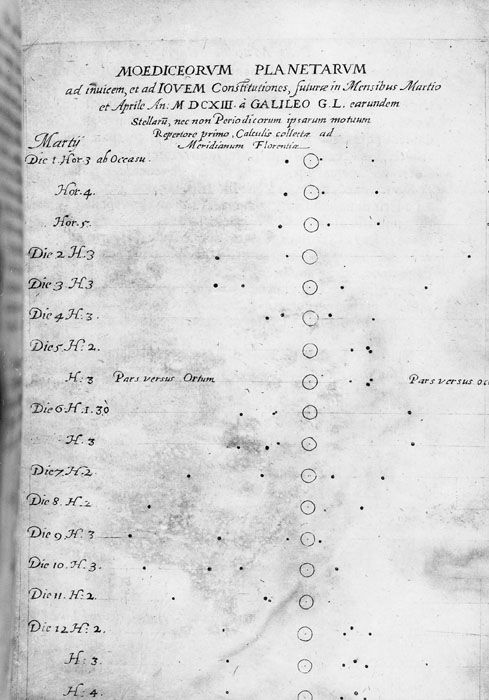 MOEDICEORVM PLANETARVM
ad inuicem, et ad IOVEM Constitutiones, futuræ in Mensibus Martio
et Aprile An: M DCXIII. á GALILEO G. L. earundem
Stellarũ, nec non Periodicorum ipsarum motuum
Repertore primo, Calculis collectæ ad
Meridianum Florentiæ
Martij
Die 1. Hor. 3 ab Occasu.
Hor. 4.
Hor. 5.
Die 2 H. 3
Die 3 H. 3
Die 4 H. 3.
Die 5 H. 2.
H. 3 Pars versus Ortum Pars versus occ
Die 6 H. 1. 30
H. 3
Die 7. H. 2
Die 8. H. 2
Die 9 H. 3
Die 10. H. 3.
Die 11. H. 2.
Die 12 H. 2.
H. 3.
H. 4